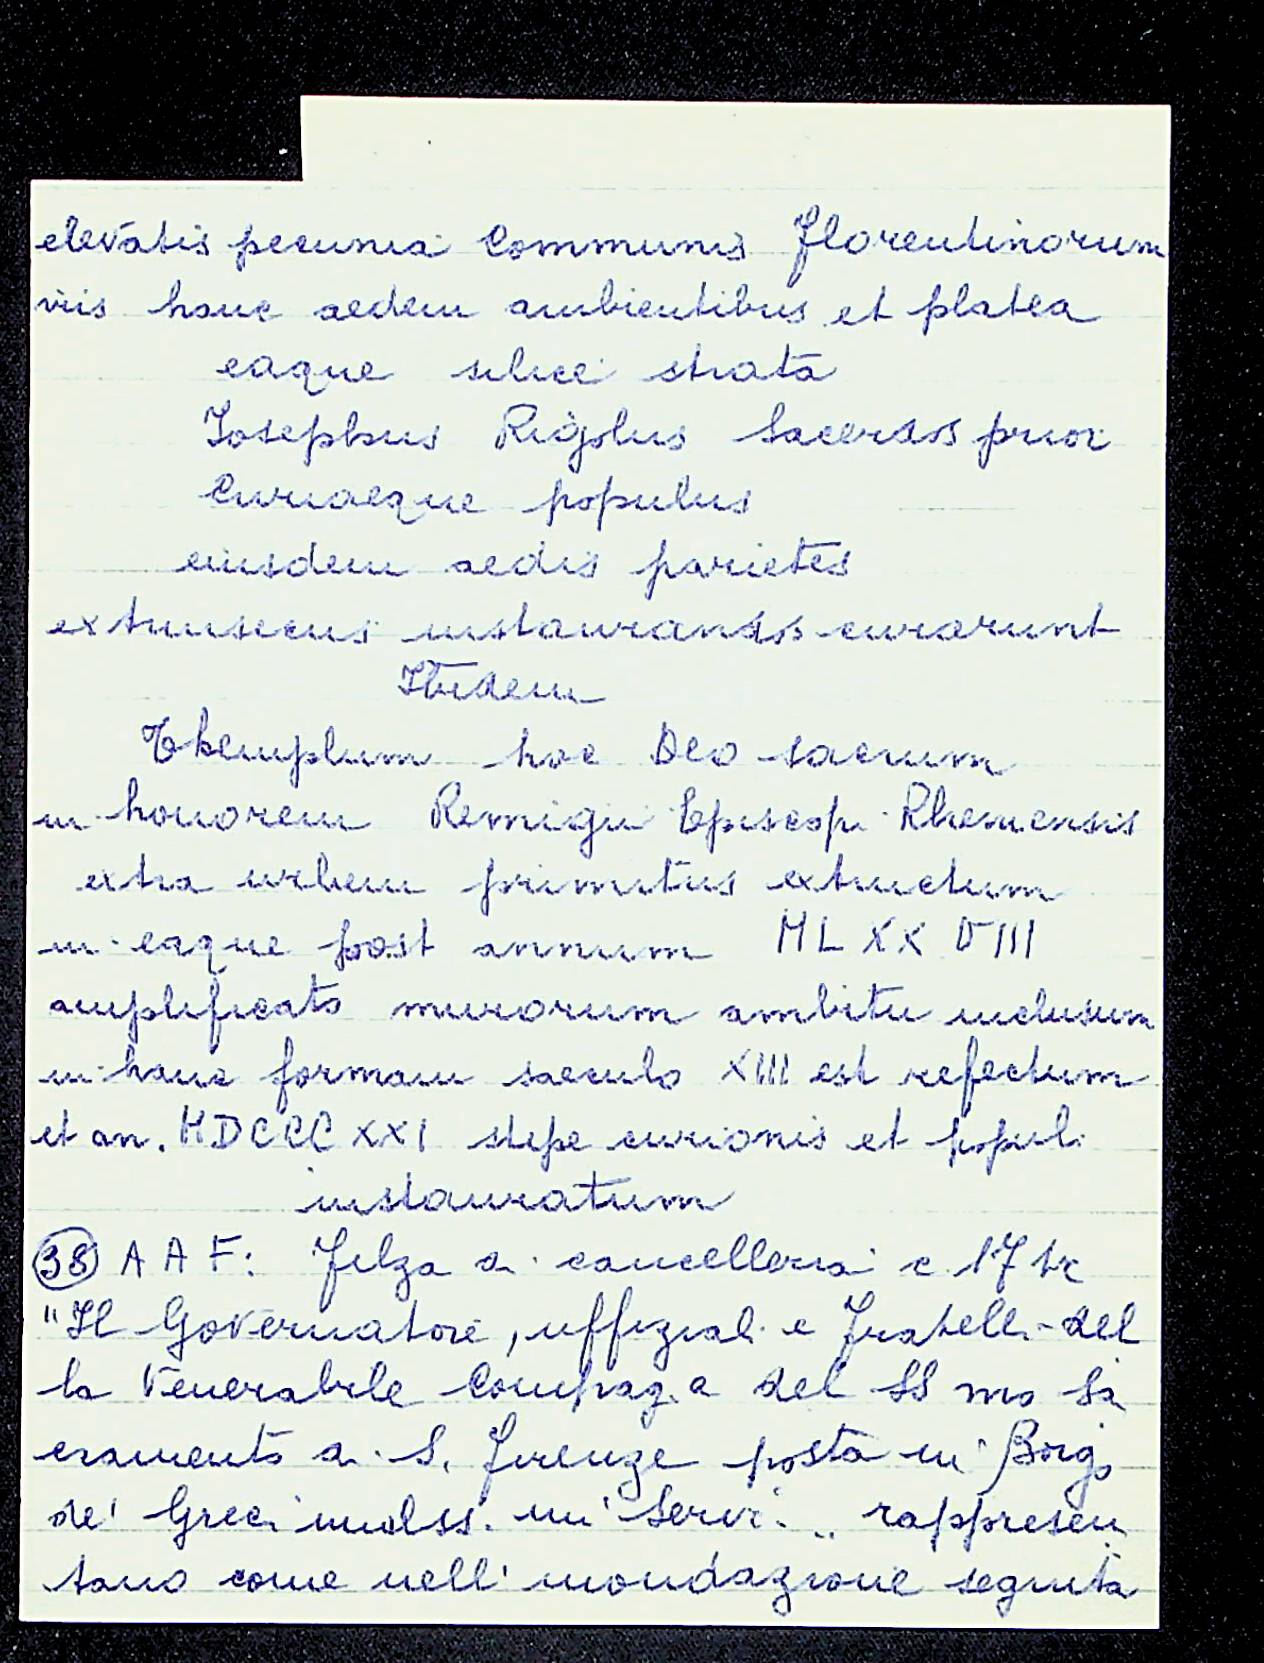 elevatis pecunia Communis Florentinorum
viis hanc aedem ambientibus et platea
eaque silice strata
Iosephus Rigolus Sacerdos prior
Curiaeque populus
eiusdem aedis parietes
extrinsecus instaurandos curarunt
Ibidem
Themplum hoc Deo sacrum
in honorem Remigii Episcopi Rhemensis
extra urbem primitus extructum
in eaque post annum MLXXVIII
amplificato murorum ambitu inclusum
in hanc formam saeculo XIII est refectum
et an. MDCCCXXI stipe curionis et populi
instauratum
(38) A A F: Filza di cancelleria c.
"Il Governatore, uffiziali e Fratelli del
la Venerabile Compag.a del SS mo Sa
cramento di S. Firenze posta in Borgo
de' Greci umilss.mi Servi .. rappresen
tano come nell'inondazione seguita